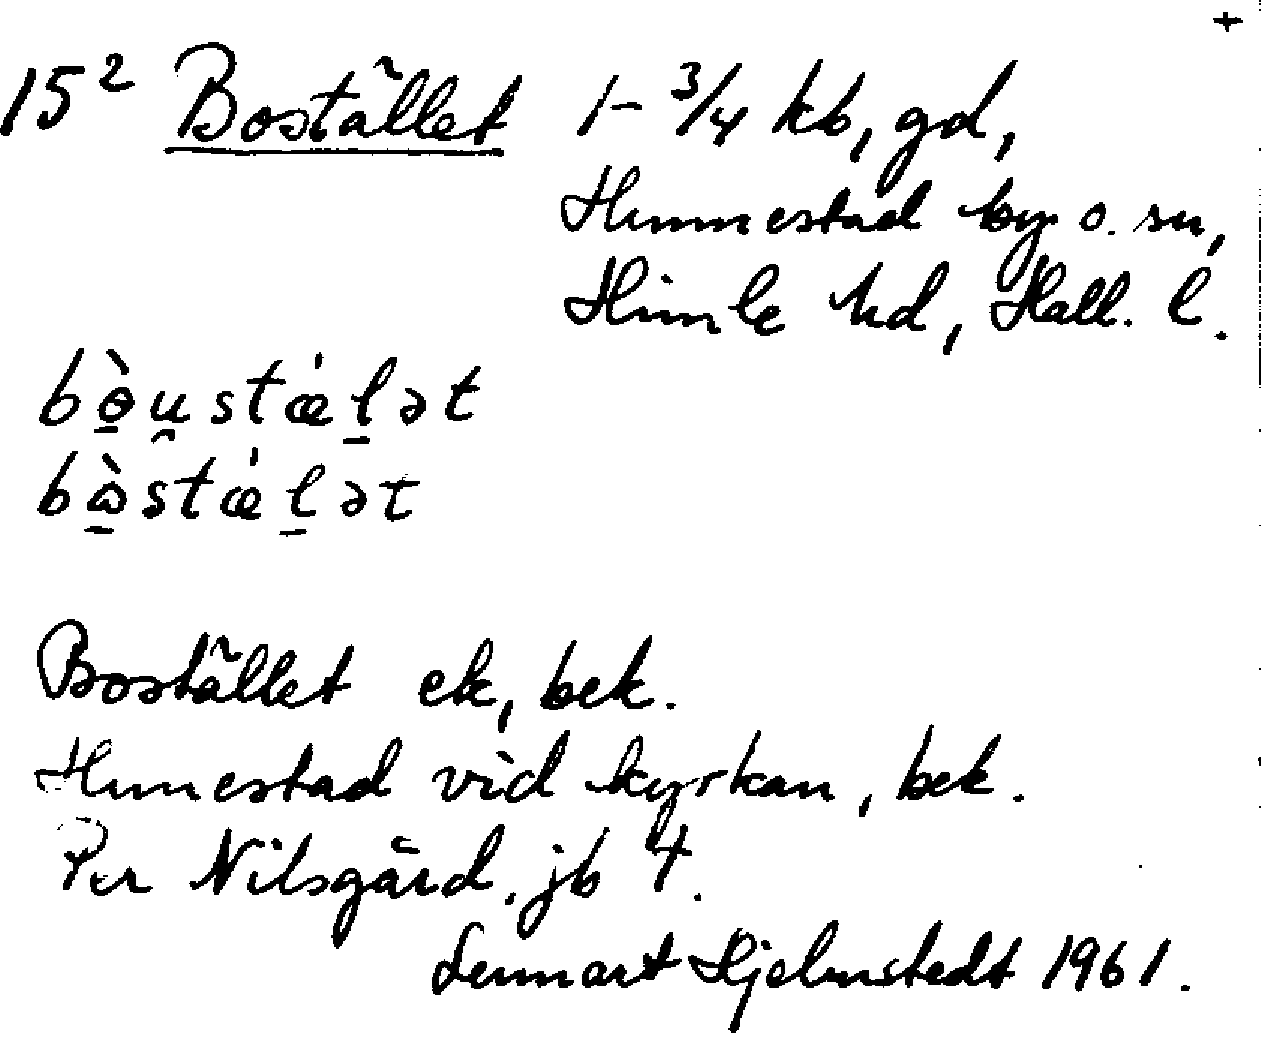 +
15² Bostället 1-3/4 kb, gd,
Hunnestad by o. sn,
Himle hd, Hall. l.
bò̱u̯stǽḻət
bɷ̱̀stǽḻət
Bostället ek, bek.
Hunnestad vid kyrkan, bek.
Per Nilsgård, jb 4.
Lennart Hjelmstedt 1961.